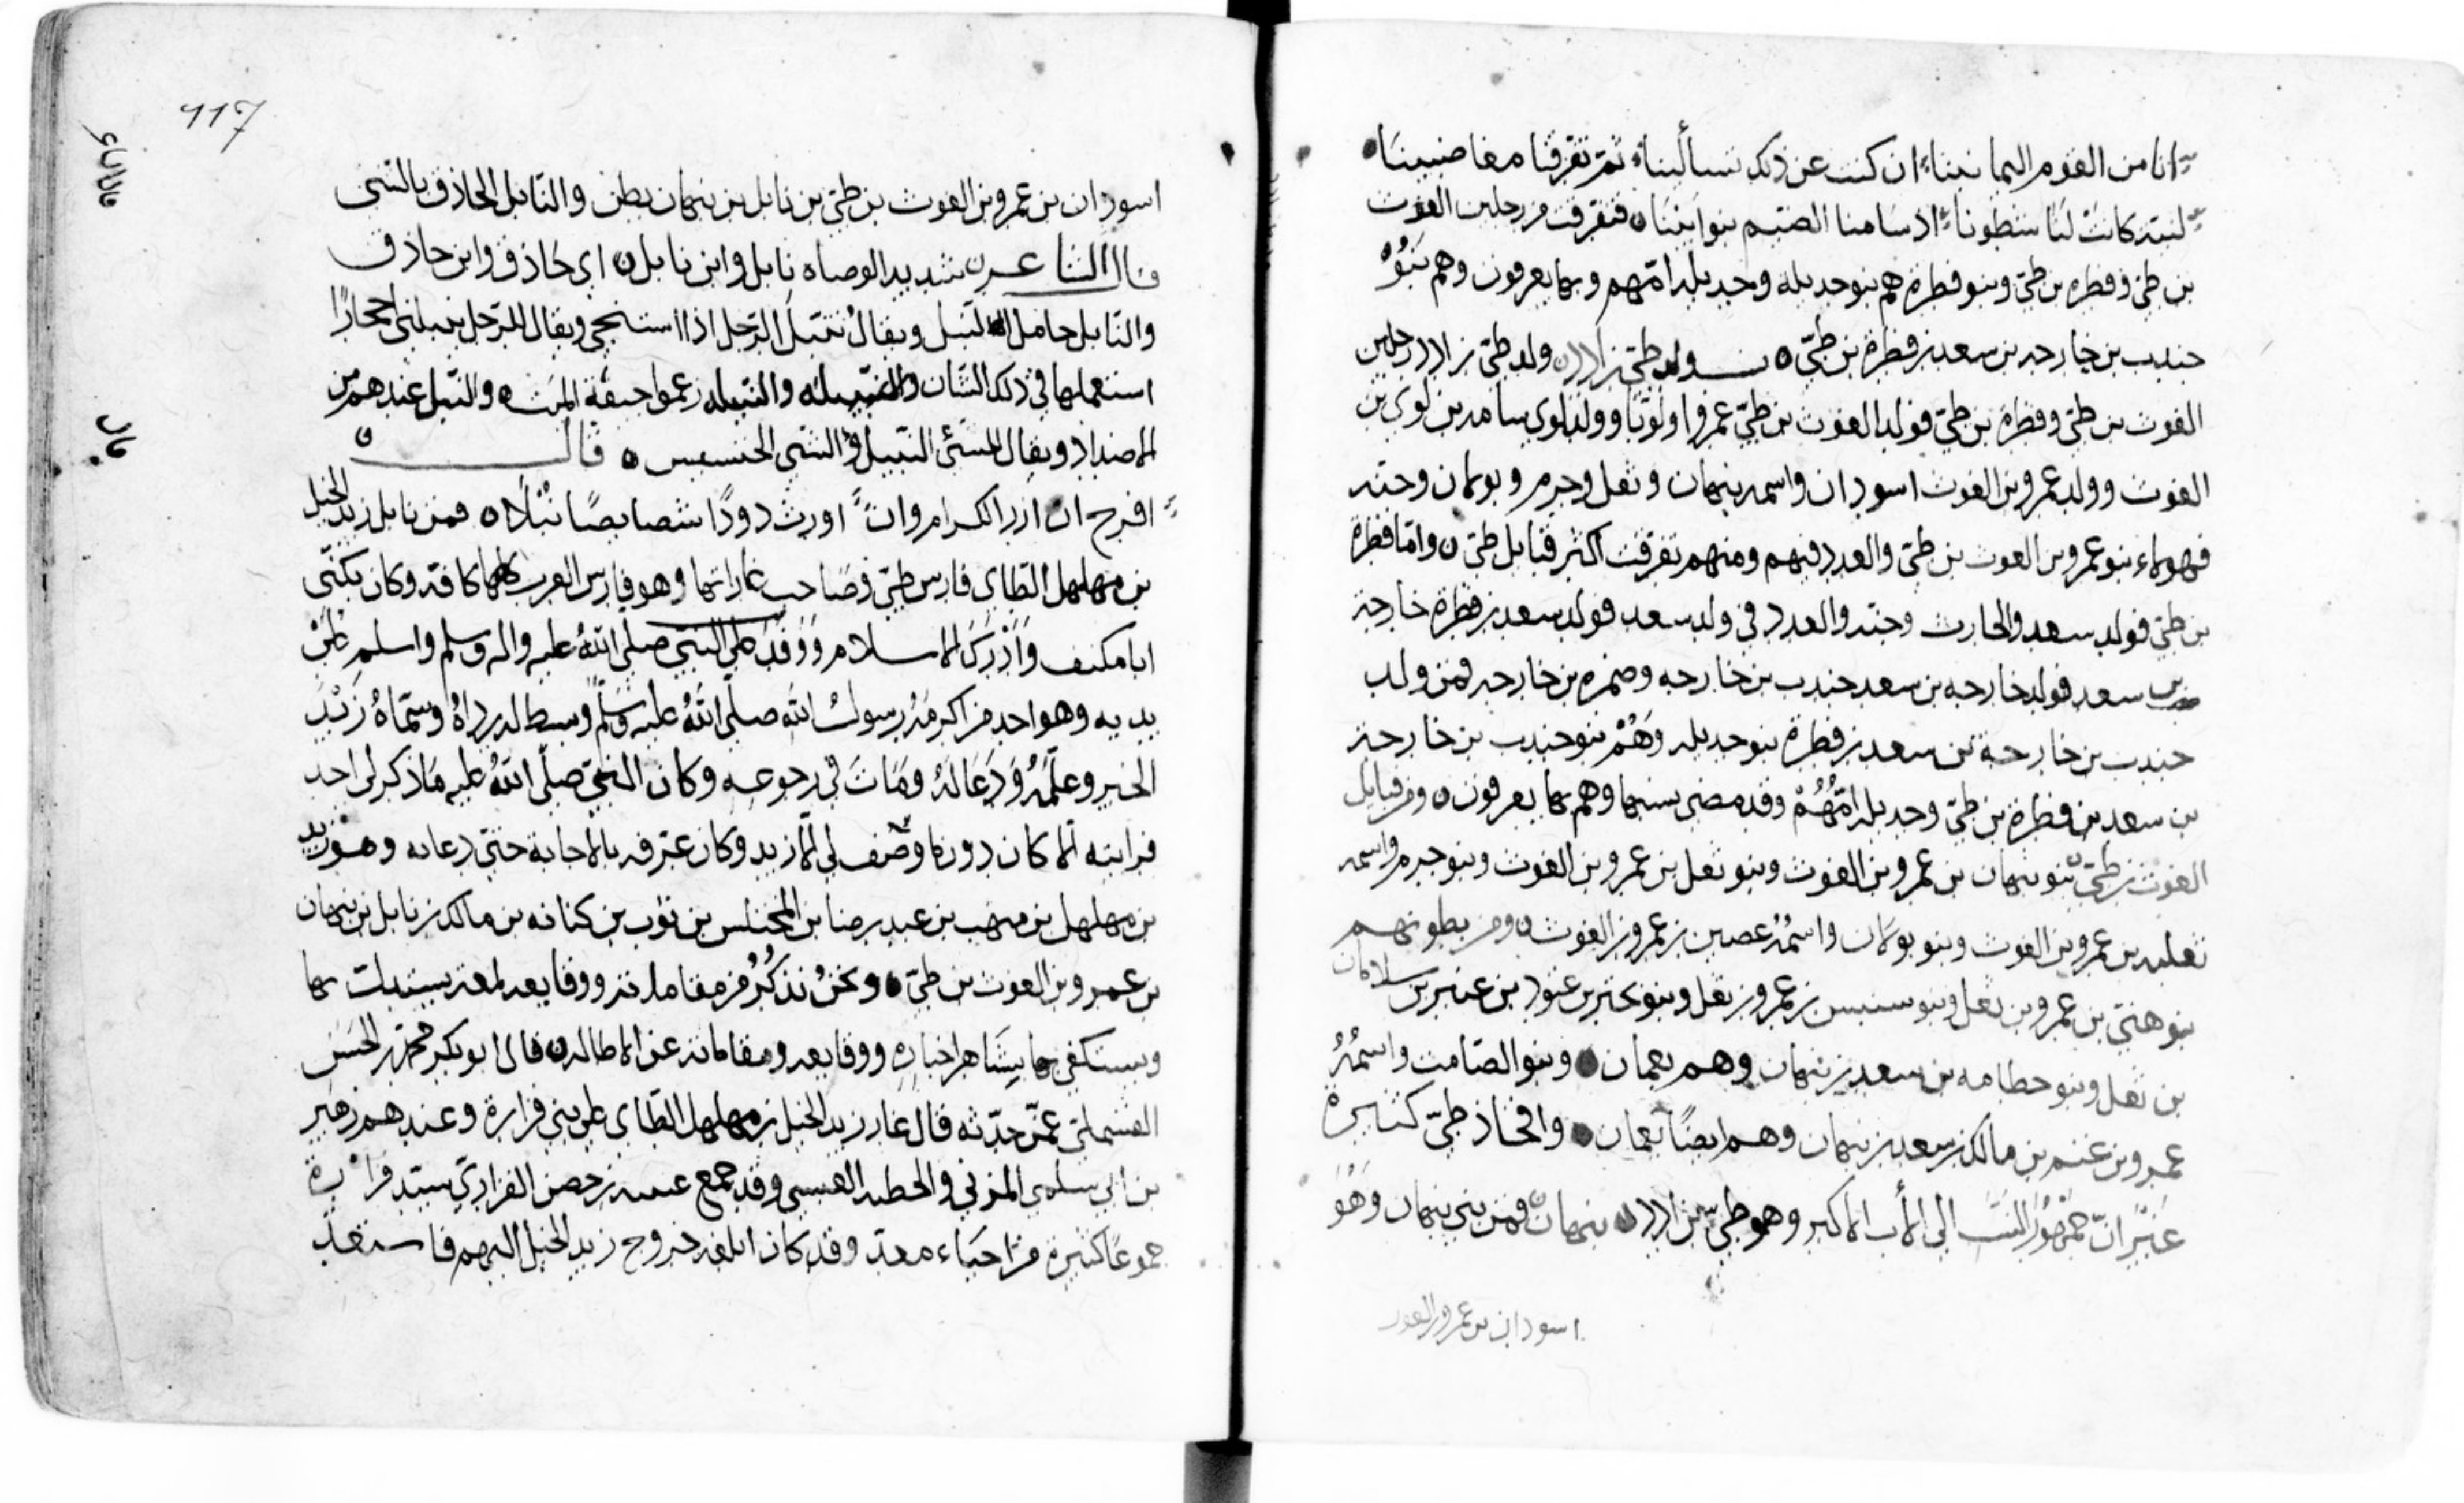 انا من القوم اليمانينا ان كنت عن ذلك تسألينا ثم تفرقنا مغاضبينا
لنية كانت لنا شطونا اذ سامنا الضيم بنو ابينا فتفرقت من رجلين الغوث
بن طي وفطره بن طي وبنو فطرة هم بنو جديله وجديلة امهم وبها يعرفون وهم بنو
جندب بن خارجه بن سعد بن فطرة بن طيّ ولد طي بن ادد ولد طي بن ادد رجلين
الغوث بن طي وفطرة بن طي فولد الغوث بن طيّ عمروا ولويا وولد لوي سامه بن لوي بن
الغوث وولد عمرو بن الغوث اسودان واسمه نبهان وثعل وجرم وبولان وحته
فهولاء بنو عمرو بن الغوث بن طي والعدد فيهم ومنهم تفرقت اكثر قبايل طي واما فطرة
بن طي فولد سعد والحارث وحته والعدد في ولد سعد فولد سعد بن فطرة خارجة
بن سعد فولد خارجه بن سعد جندب بن خارجه وضمره بن خارجه فمن ولد
جندب بن خارجة بن سعد بن فطرة بنو جديله وهم بنو جندب بن خارجة
بن سعد بن فطرة بن طي وجديلة امهم وقد مضى نسبها وهم بها يعرفون ومن قبايل
الغوث بن طيّ بنو نبهان بن عمرو بن الغوث وبنو ثعل بن عمرو بن الغوث وبنو جرم واسمه
ثعلبه بن عمرو بن الغوث وبنو بولان واسمه غصين بن عمرو بن الغوث ومن بطونهم
بنو هني بن عمرو بن ثعل وبنو سنبس بن عمرو بن ثعل وبنو بحتر بن عتود بن عنين بن سلامان
بن ثعل وبنو خطامه بن سعد بن نبهان وهم بعمان وبنو الصامت واسمه
عمرو بن غنم بن مالك بن سعد بن نبهان وهم ايضًا بعمان وافخاذ طيّ كثيرة
غير انّ جمهور النسب الى الأب الاكبر وهو طي بن ادد نبهان فمن بني نبهان وهو
اسودان بن عمرو بن الغوث
117
اسودان بن عمرو بن الغوث بن طي بن نابل بن نبهان بطن والنابل الحاذق بالشي
قال الشاعر شديد الوصاه نابل وابن نابل اي حاذق وابن حاذق
والنابل حامل النبل ويقال تنبل الرجل اذا استنجى ويقال للرجل نبلني احجارًا
استعملها في ذلك الشان والنبيله والنبيله زعموا جيفة الميت والنبل عندهم من
الاضداد ويقال للشي النبيل والشي الخسيس قال
افرح ان ارزا الكرام وان اورث ذودًا شصايصًا نبلًا فمن نابل زيد الخيل
بن مهلهل الطاي فارس طي وصاحب غاراتها وهو فارس العرب كلها كافة وكان يكنّى
ابا مكنف وادرك الاسلام ووفد على النبي صلى الله عليه واله وسلم واسلم على
يديه وهو احد من اكرمه رسول الله صلى الله عليه وسلم وبسط له رداه وسماه زيد
الخير وعلمه ودعا له ومات في رجوعه وكان النبي صلى الله عليه ما ذكر لي احد
فرايته الا كان دون ما وصف لي الا زيد وكان عرفه بالاجابة حتى دعا به وهو زيد
بن مهلهل بن منهب بن عبد رضا بن المختلس بن ثوب بن كنانه بن مالك بن نابل بن نبهان
بن عمرو بن الغوث بن طي ونحن نذكر من مقاماته ووقايعه لمعة يستدلّ بها
ويستكفى بها مشاهر اخباره ووقايعه ومقاماته عن الاطاله قال ابو بكر محمد بن الحسن
عمّن حدّثه قال غار زيد الخيل بن مهلهل الطاي على بني فزارة وعندهم زهير
بن ابي سلمى المزني والحطيه العبسي وقد جمع عيينه بن حصن الفزاريّ سيّد فزارة
جموعًا كثيرة من احياء معدّ وقد كان ابلغه خروج زيد الخيل اليهم فاستعدّ